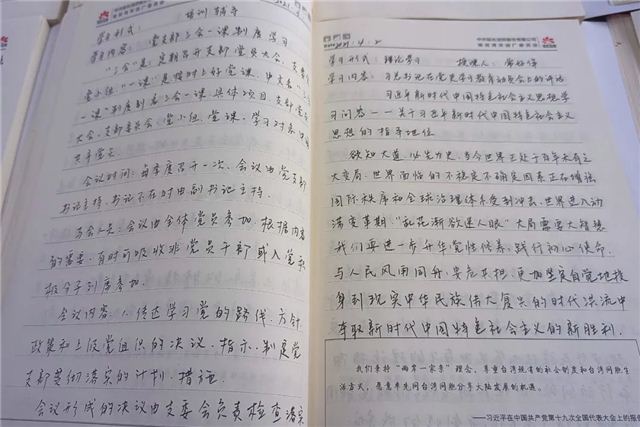 学习形式： 培训辅导
学习内容： 党支部三会一课制度学习
"三会"是：定期召开支部党员大会、支委会
党小组，"一课"是按时上好党课
一课"制度制度三会一课具体项目支部党员
大会、支部委员会、党小组、党课，学习对象
共产党员
会议时间：每季度召开一次，会议由党支部
书记主持，书记不在时由副书记主持。
与会人员：会议由全体党员参加，根据内容
的需要，有时可吸收非党员干部或入党积
极分子列席参加。
会议内容：1、传达学习党的路线、方针
政策和上级党组织的决议、指示，制定党
支部贯彻落实的计划、措施。
会议形成的决议由支委会负责检查落实
2021.4.2
学习形式：理论学习 授课人：
学习内容：习总书记在党史学习教育动员会上的讲话
习近平新时代中国特色社会主义思想学
习问答——关于习近平新时代中国特色社会主义
思想的指导地位
欲知大道，必先为史，当今世界正处于百年未有之
大变局，世界面临的不稳定不确定因素正在增强
国际秩序和全球治理体系受到冲击，世界进入动
荡变革期，"乱花渐欲迷人眼"大局需要大智慧
我们要进一步升华党性修养，践行初心使命，
与人民风雨同舟、安危共担，更加坚定自觉地投
身到实现中华民族伟大复兴的时代洪流中
夺取新时代中国特色社会主义的新胜利。
我们秉持"两岸一家亲"理念，尊重台湾现有的社会制度和台湾同胞生
活方式，愿意率先同台湾同胞分享大陆发展的机遇。
——习近平在中国共产党第十九次全国代表大会上的报告